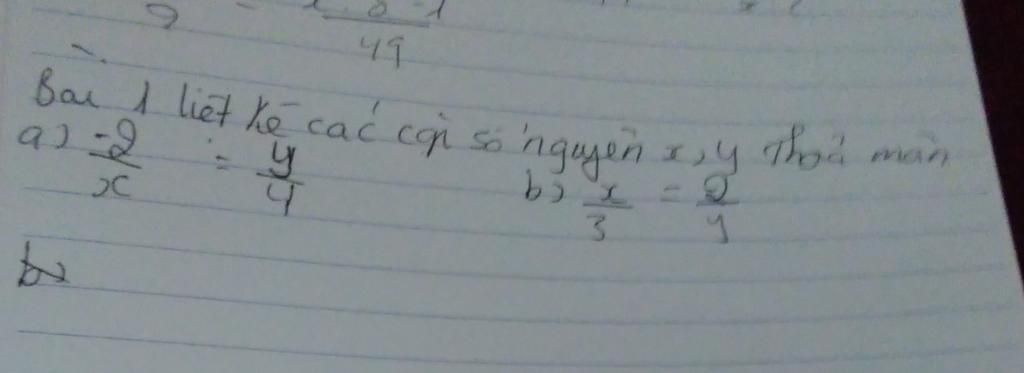 49
Bài 1 liệt kê các cặp số nguyên x, y thoả mãn
a) -2/x = y/4
b) x/3 = 2/y
b)